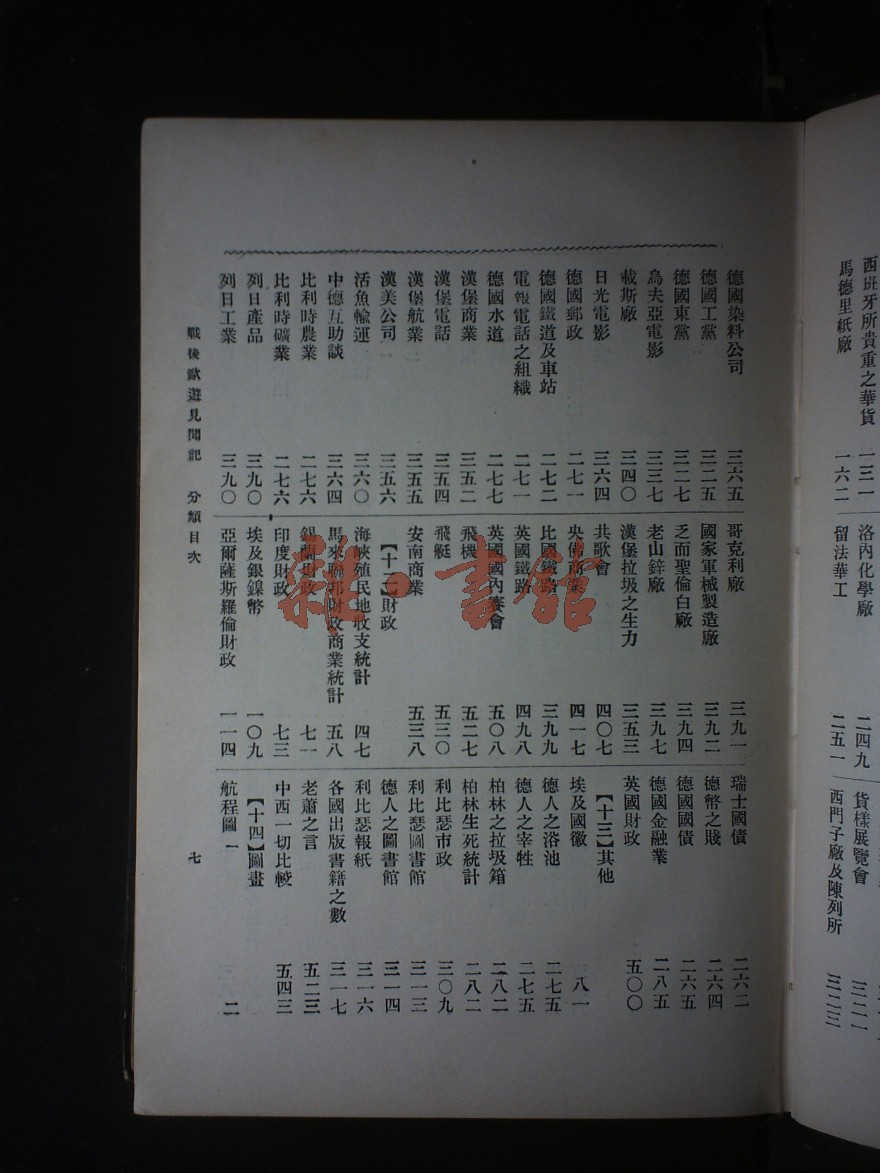 西班牙所貴重之華貨 一三一
馬德里紙廠 一六二
洛內化學廠 二四九
留法華工 二五一
貨樣展覽會
西門子廠及陳列所 三二三
德國染料公司 三六五
德國工黨 三二五
德國東黨 三二七
烏夫亞電影 三三七
載斯廠 三四〇
日光電影 三六四
德國郵政 二七一
德國鐵道及車站 二七二
電報電話之組織 二七一
德國水道 二七七
漢堡商業 三五二
漢堡電話 三五四
漢堡航業 三五五
漢美公司 三五六
活魚輸運 三六〇
中德互助談 三六四
比利時農業 二七六
比利時礦業 二七六
列日產品 三九〇
列日工業 三九〇
哥克利廠 三九一
國家軍械製造廠 三九二
乏而聖倫白廠 三九四
老山鋅廠 三九七
漢堡拉圾之生力 三五三
共歌會 四〇七
央佛商業 四一七
比國鐵路 三九九
英國鐵路 四九八
英國國內賽會 五〇八
飛機 五二七
飛艇 五三〇
安南商業 五三八
【十二】財政
海峽殖民地收支統計 四七
馬來聯邦財政商業統計 五八
錫蘭財政 七一
印度財政 七三
埃及銀鎳幣 一〇九
亞爾薩斯羅倫財政 一一四
瑞士國債 二六二
德幣之賤 二六四
德國國債 二六五
德國金融業 二八五
英國財政 五〇〇
【十三】其他
埃及國徽 八一
德人之浴池 二七五
德人之宰牲 二七五
柏林之拉圾箱 二八二
柏林生死統計 二八二
利比瑟市政 三〇九
利比瑟圖書館 三一三
德人之圖書館 三一四
利比瑟報紙 三一六
各國出版書籍之數 三一七
老蕭之言 五二三
中西一切比較 五四三
【十四】圖畫
航程圖一 二
戰後歐遊見聞記 分類目次 七
雜·書館